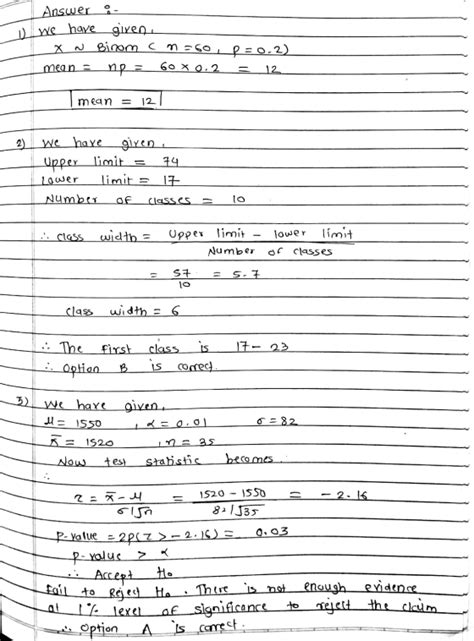 Answer :-
1) We have given,
X ~ Binom ( n = 60, p = 0.2)
mean = np = 60 x 0.2 = 12
mean = 12
2) We have given,
Upper limit = 74
Lower limit = 17
Number of classes = 10
∴ class width = Upper limit - lower limit
Number of classes
= 57 = 5.7
10
class width = 6
∴ The first class is 17 - 23
∴ Option B is correct.
3) We have given,
μ = 1550 , α = 0.01 σ = 82
x̄ = 1520 , n = 35
Now test statistic becomes
z = x̄ - μ = 1520 - 1550 = - 2.16
σ/√n 82/√35
P-value = 2P(z > - 2.16) = 0.03
p-value > α
∴ Accept H₀
Fail to Reject H₀. There is not enough evidence
at 1% level of significance to reject the claim
∴ Option A is correct.